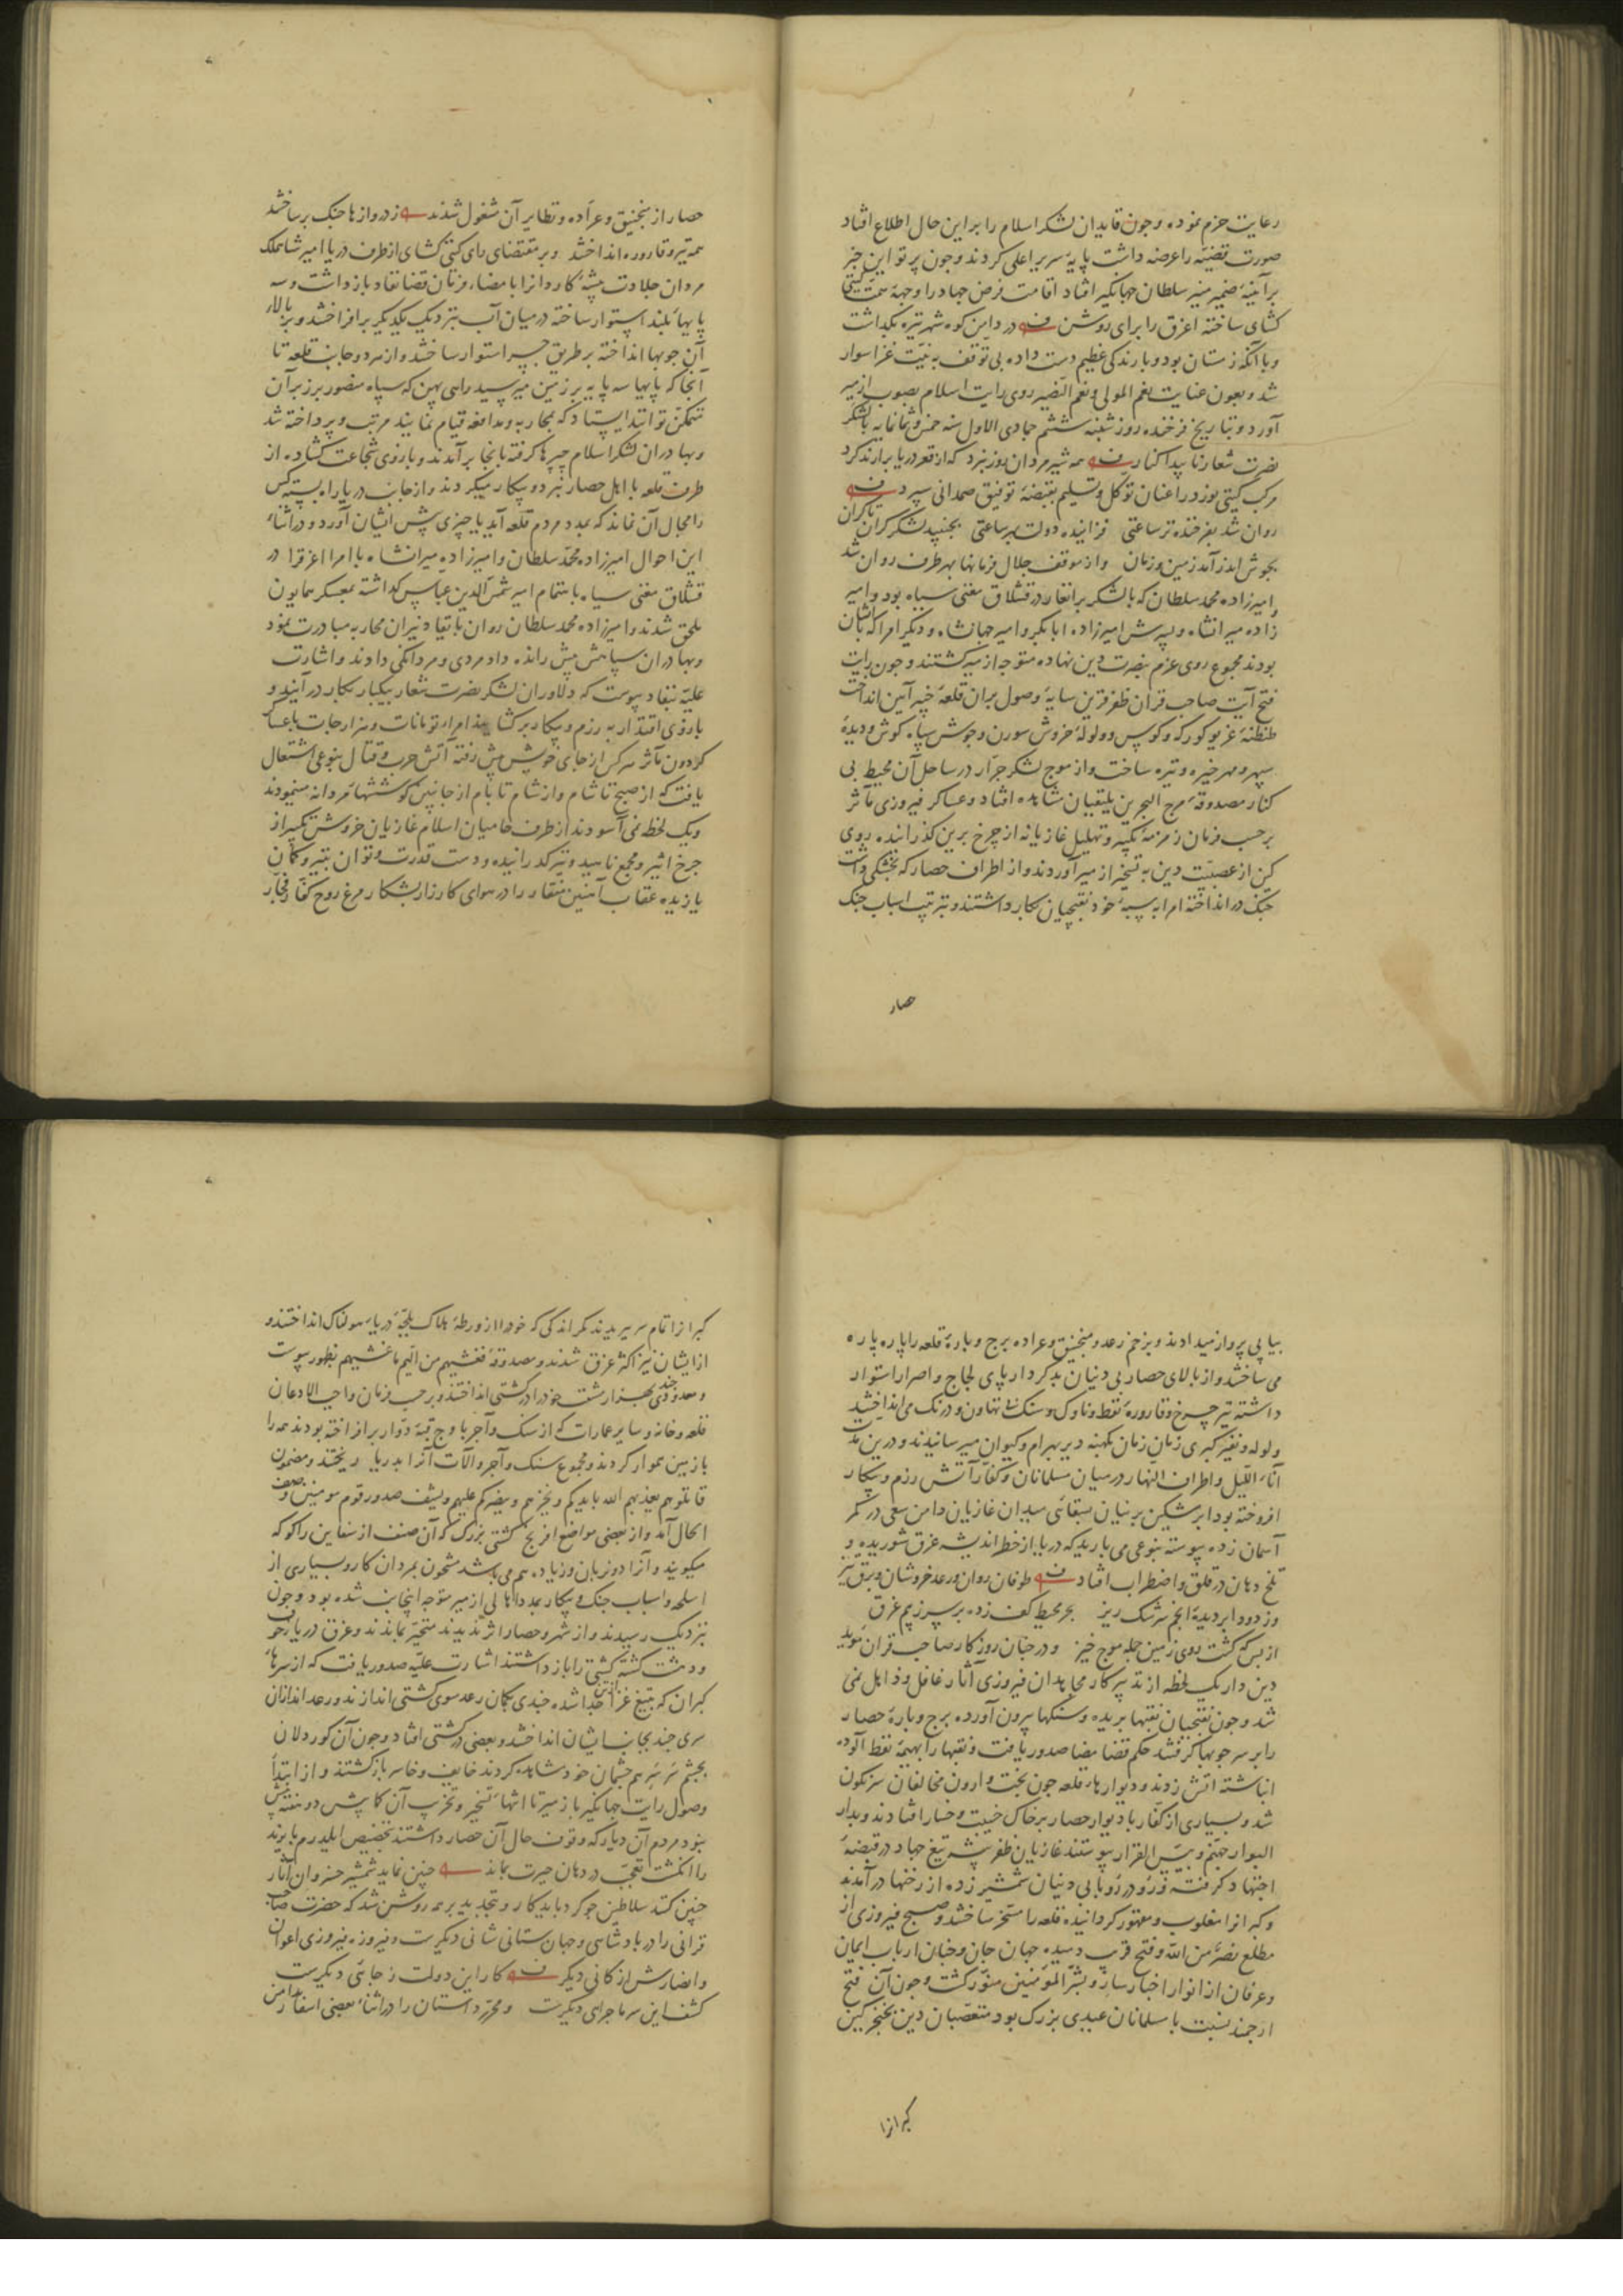 رعایت حزم نموده وجون قایدان لشکر اسلام را بر این حال اطلاع افتاد
صورت قضیّه را عرضه داشت پایهٔ سریر اعلی کردند وجون پرتو این خبر
بر آینهٔ ضمیر منیر سلطان جهانکیر افتاد اقامت فرض جهاد را وجههٔ همّت کیتی
کشای ساخته اغرق را برای روشن در دامن کوه شهر تیره بکداشت
وبا آنکه زمستان بود وبارندکی عظیم دست داده بی توقف به نیّت غزا سوار
شد وبعون عنایت نعم المولی ونعم النصیر روی رایت اسلام بصوب ازمیر
آورد وبتاریخ فرخنده روز شنبه ششم جمادی الاول سنه خمس وثمانمایه با لشکر
نصرت شعار ناپیدا کنار همه شیر مردان روز نبرد که از قعر دریا برارند کرد
مرکب کیتی نورد را عنان توکل وتسلیم بقبضهٔ توفیق صمدانی سپرد
روان شد بفرخنده تر ساعتی فزاینده دولت بهر ساعتی بجنبید لشکر کران تا کران
بجوش اندر آمد زمین وزمان واز موقف جلال فرمانها بهر طرف روان شد
وامیر زاده محمد سلطان که با لشکر برانغار در قشلاق مغنی سیاه بود وامیر
زاده میرانشاه وپسرش امیرزاده ابابکر وامیر جهانشاه ودیکر امرا که باایشان
بودند مجموع روی عزم بنصرت دین نهاده متوجه ازمیر کشتند وجون رایت
فتح آیت صاحب قران ظفر قرین سایهٔ وصول بران قلعهٔ خیبر آیین انداخت
طنطنهٔ غریو کورکه وکوس وولولهٔ خروش سورن وجوش سپاه کوش ودیدهٔ
سپهر ومهر خیره وتیره ساخت واز موج لشکر جرّار در ساحل آن محیط بی
کنار مصدوقهٔ مرج البحرین یلتقیان مشاهده افتاد وعساکر فیروزی مآثر
بر حسب فرمان زمزمهٔ تکبیر وتهلیل غازیانه از چرخ برین کذرانیده روی
کین از عصبیّت دین به تسخیر ازمیر آوردند واز اطراف حصار که بخشکی داشت
جنک در انداخته امرا به سیبهٔ خود نقبچیان بکار داشتند وبترتیب اسباب جنک
حصار
حصار از منجنیق وعرّاده ونظایر آن مشغول شدند ز دروازها جنک برساختند
همه تیر وقاروره انداختند وبر مقتضای رای کیتی کشای از طرف دریا امیر شاهملک
مردان جلادت پیشهٔ کاردانرا بامضاء فرمان قضا نفاد بازداشت وسه
پایهاء بلند استوار ساخته در میان آب نزدیک یکدیکر برافراختند وبر بالاء
آن جوبها انداخته بر طریق جسر استوار ساختند واز هر دو جانب قلعه تا
آنجا که پایها سه پایه بر زمین میرسید راهی پهن که سپاه منصور بر زبر آن
متمکّن توانند ایستاد که بمحاربه ومدافعه قیام نمایند مرتب وپرداخته شد
وبهادران لشکر اسلام چپرها کرفته بانجا برآمدند وبازوی شجاعت کشاده از
طرف قلعه با اهل حصار نبرد وپیکار میکردند واز جانب دریا راه بسته کس
را مجال آن نماند که بمدد مردم قلعه آید یا چیزی پیش ایشان آورد ودر اثناء
این احوال امیرزاده محمّد سلطان وامیرزاده میرانشاه باامرا اغرقرا در
قشلاق مغنی سیاه باهتمام امیر شمس الدین عباس کداشته بمعسکر همایون
ملحق شدند وامیرزاده محمد سلطان روان بایقاد نیران محاربه مبادرت نمود
وبهادران سپاهش پیش رانده داد مردی ومردانکی دادند واشارت
علیّه بنفاد پیوست که دلاوران لشکر نصرت شعار بیکبار بکار درآیند و
بازوی اقتدار به رزم وپیکار برکشایند امراء تومانات وهزارجات باعساکر
کردون مآثر هر کس از جای خویش پیش رفته آتش حرب وقتال بنوعی اشتعال
یافت که از صبح تا شام واز شام تا بام از جانبین کوششهاء مردانه مینمودند
ویک لحظه نمی آسودند از طرف حامیان اسلام غازیان خروش تکبیر از
چرخ اثیر ومجمع ناهید وتیر کدرانیده ودست قدرت وتوان بتیر وکمان
یازیده عقاب آهنین منقار را در هوای کارزار بشکار مرغ روح کفّار فجّار
بیاپی پرواز میدادند وبزخم رعد ومنجنیق وعراده برج وبارهٔ قلعه را پاره پاره
می ساختند واز بالای حصار بی دینان بدکردار پای لجاج واصرار استوار
داشته تیر چرخ وقارورهٔ نفط وناوک وسنک بی تهاون ودرنک می انداختند
ولوله ونفیر کبری زمان زمان بکهنه دیر بهرام وکیوان میرسانیدند ودرین مدّت
آناء اللّیل واطراف النهار در میان مسلمانان وکفّار آتش رزم وپیکار
افروخته بود ابر مشکین بر نیان بسقائی میدان غازیان دامن سعی در کمر
آسمان زده پیوسته بنوعی می بارید که دریا از خطر اندیشه غرق شوریده و
تلخ دهان در قلق واضطراب افتاد طوفان روان ورعد خروشان وبرق تیز
وز دود ابر دیدهٔ انجم سرشک ریز بحر محیط کف زده بر سر ز بیم غرق
از بس که کشت روی زمین جمله موج خیز ودر جنان روز کار صاحب قران موید
دین دار یک لحظه از تدبیر کار مجاهدان فیروزی آثار غافل وذاهل نمی
شد وجون نقبچیان نقبها بریده وسنکها بیرون آورده برج وبارهٔ حصار
را بر سر جوبها کرفتند حکم قضا مضا صدور یافت ونقبها را بهیمهٔ نفط آلوده
انباشته اتش زدند ودیوارهاء قلعه جون بخت وارون مخالفان سرنکون
شد وبسیاری از کفار با دیوار حصار بر خاک خیبت وخسار افتادند وبدار
البوار جهنّم وبئس القرار پیوستند غازیان ظفر پیشه تیغ جهاد در قبضهٔ
اجتهاد کرفته زد ودر رو با بی دینان شمشیر زده از رخنها درآمدند
وکبرانرا مغلوب ومقهور کردانیده قلعه را مسخّر ساختند وصبح فیروزی از
مطلع نصر من اللّه وفتح قریب دمیده جهان جان وجنان ارباب ایمان
وعرفان از انوار اخبار سارّ وبشّر المؤمنین منوّر کشت وجون آن فتح
ارجمند نسبت با مسلمانان عیدی بزرک بود متعصّبان دین بخنجر کین
کبرانرا
کبرانرا تمام سر بریدند مکر اندکی که خود را از ورطهٔ هلاک بلجّهٔ دریاء هولناک انداختند و
از ایشان نیز اکثر غرق شدند ومصدوقهٔ فغشیهم من الیم ما غشیهم بظهور پیوست
ومعدودی چند بهزار مشقت خود را در کشتی انداختند وبر حسب فرمان واجب الاذعان
قلعه وخانه وسایر عمارات که از سنک وآجر باوج قبّهٔ دوّار برافراخته بودند همه را
با زمین هموار کردند ومجموع سنک وآجر وآلات آنرا بدریا ریختند ومضمون
قاتلوهم یعذبهم الله بایدیکم ویخزهم وینصرکم علیهم ویشف صدور قوم مومنین وصف
الحال آمد واز بعضی مواضع افرنج کشتی بزرک که آن صنف از سفاین را کوکه
میکویند وآنرا دو نردبان وزیاده هم می باشد مشحون بمردان کار وبسیاری از
اسلحه واسباب جنک وپیکار بمدد اهالی ازمیر متوجه اینجانب شده بود وجون
نزدیک رسیدند واز شهر وحصار اثر ندیدند متحیّر بماندند وغرق دریای خوف
ودهشت کشته کشتی را باز داشتند اشارت علیّه صدور یافت که از سرهاء
کبران که بتیغ غزا از تن جدا شده چندی بکمان رعد سوی کشتی اندازند ورعد اندازان
سری چند بجانب ایشان انداختند وبعضی در کشتی افتاد وجون آن کوردلان
بچشم سر سر هم جنسان خود مشاهده کردند خایف وخاسر بازکشتند واز ابتداء
وصول رایت جهانکیر بازمیر تا انتهاء تسخیر وتخریب آن کما بیش دو هفته بیش
نبود مردم آن دیار که وقوف حال آن حصار داشتند بتخصیص ایلدرم بایزید
را انکشت تعجّب در دهان حیرت بماند چنین نماید شمشیر خسروان آثار
چنین کنند سلاطین چو کرد باید کار وبتجدید بر همه روشن شد که حضرت صاحب
قرانی را در پادشاهی وجهان ستانی شانی دیکرست وفیروزه فیروزی اعوان
وانصارش از کانی دیکر کار این دولت ز جائی دیکرست
کشف این سر ماجرای دیکرست ومحرّر داستان را در اثناء بعضی اسفار از من